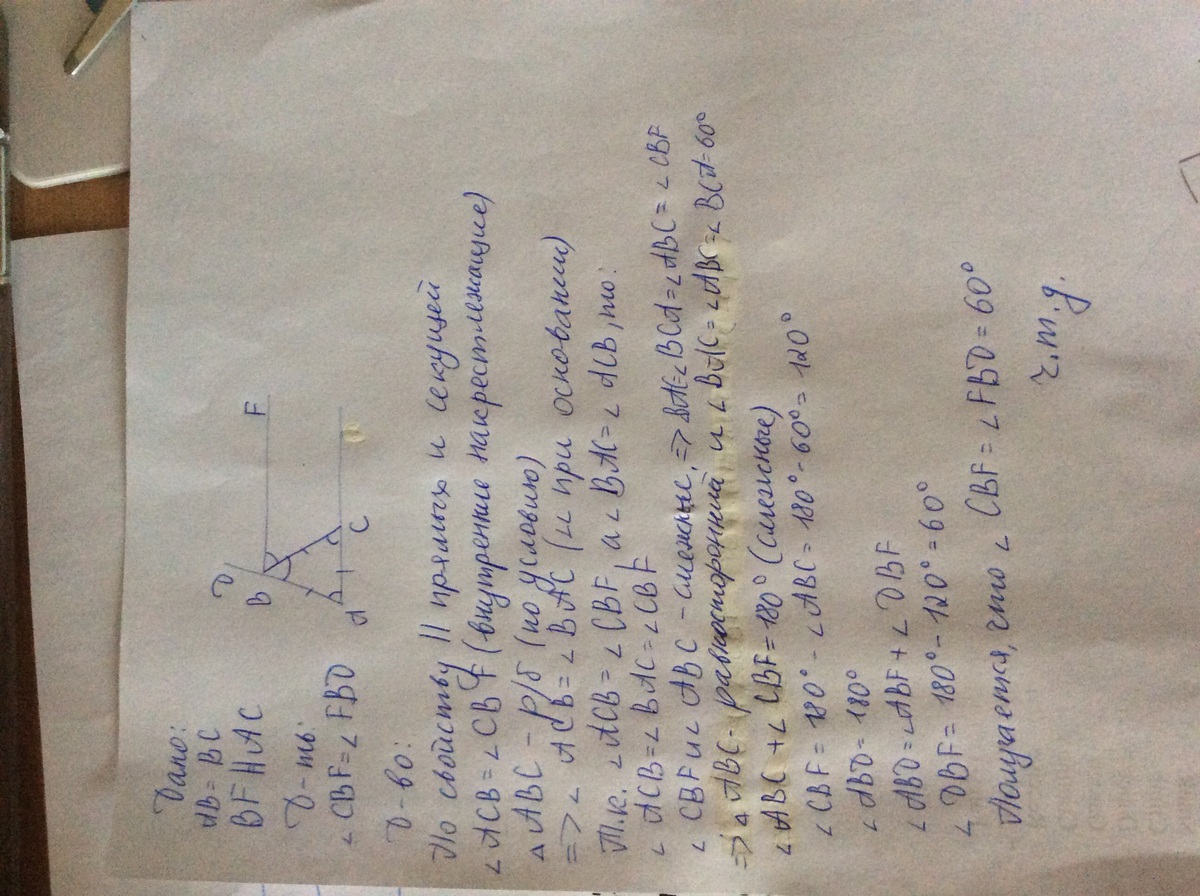 Дано:
AB = BC
BF || AC
Д-ть:
∠CBF = ∠FBD
D
B
F
A
C
Д-во:
По свойству || прямых и секущей
∠ACB = ∠CBF (внутренние накрестлежащие)
△ABC - р/б (по условию)
=> ∠ACB = ∠BAC (∠∠ при основании)
Т.к. ∠ACB = ∠CBF а ∠BAC = ∠ACB, то:
∠ACB = ∠BAC = ∠CBF
∠CBF и ∠ABC - смежные, => BAC = ∠BCA = ∠ABC = ∠CBF
=> △ABC - равносторонний и ∠BAC = ∠ABC = ∠BCA = 60°
∠ABC + ∠CBF = 180° (смежные)
∠CBF = 180° - ∠ABC = 180° - 60° = 120°
∠ABD = 180°
∠ABD = ∠ABF + ∠DBF
∠DBF = 180° - 120° = 60°
Получается, что ∠CBF = ∠FBD = 60°
ч.т.д.